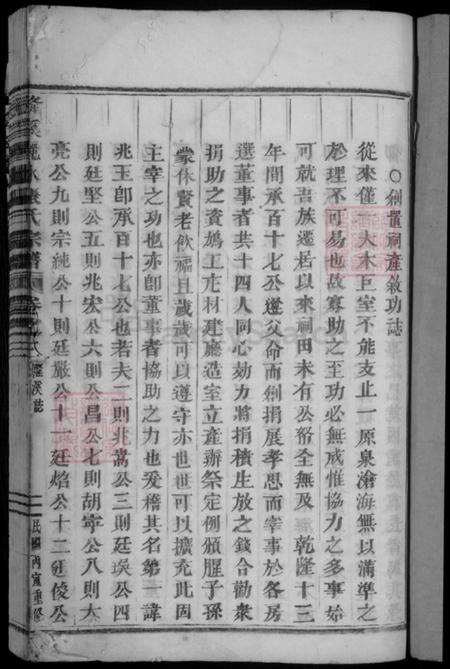 ○創置祠產敘功誌
從來僅一大木巨室不能支止一原泉滄海無以溝準之
於理不可易也故寡助之至功必無成惟協力之多事始
可就吾族遷居以來祠田未有公帑全無及 乾隆十三
年間承百十七公遵父命而創捐展孝思而宰事於各房
選董事者共十四人同心効力將捐積生放之錢合勸衆
捐助之資鳩工庀材建廳造室立產辦祭定例頒胙子孫
蒙休賢老飲福且歲歲可以遵守亦世世可以擴充此固
主宰之功也亦卽董事者協助之力也爰稽其名第一諱
兆玉卽承百十七公也若夫二則兆嵩公三則廷吳公四
則廷堅公五則兆宏公六則公昌公七則胡寧公八則大
亮公九則宗純公十則廷嚴公十一廷焰公十二廷俊公
氏宗譜 卷
誌
民國丙寅重修